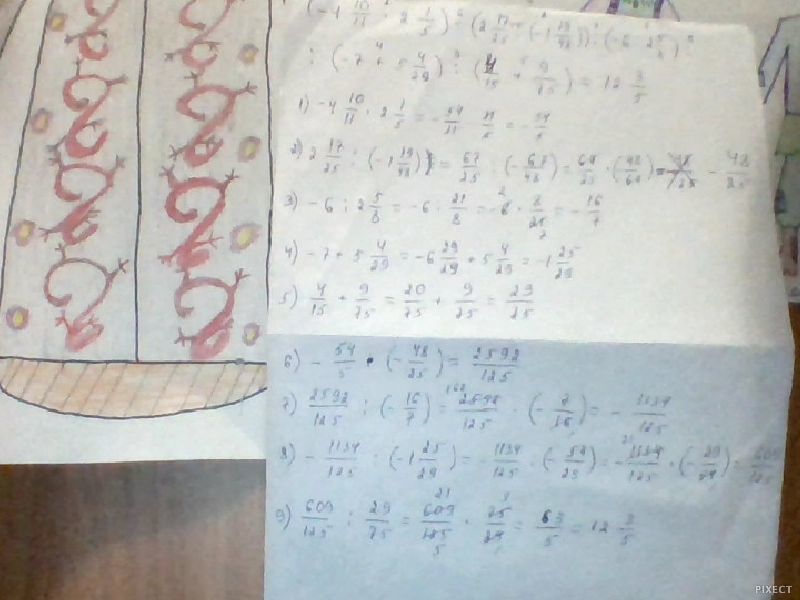 (-4 10/11 · 2 1/5) : (2 17/25 : (-1 19/48)) : (-6 : 2 5/8) :
: (-7 + 5 4/29) : (4/15 + 9/75) = 12 3/5
1) -4 10/11 · 2 1/5 = -54/11 · 11/5 = -54/5
2) 2 17/25 : (-1 19/48) = 67/25 : (-67/48) = 67/25 · (48/67) = - 48/25
3) -6 : 2 5/8 = -6 : 21/8 = -6 · 8/21 = -16/7
4) -7 + 5 4/29 = -6 29/29 + 5 4/29 = -1 25/29
5) 4/15 + 9/75 = 20/75 + 9/75 = 29/75
6) -54/5 · (-48/25) = 2592/125
7) 2592/125 : (-16/7) = 2592/125 · (-7/16) = -1134/125
8) -1134/125 : (-1 25/29) = -1134/125 : (-54/29) = -1134/125 · (-29/54) = 609/125
9) 609/125 : 29/75 = 609/125 · 75/29 = 63/5 = 12 3/5
PIXECT